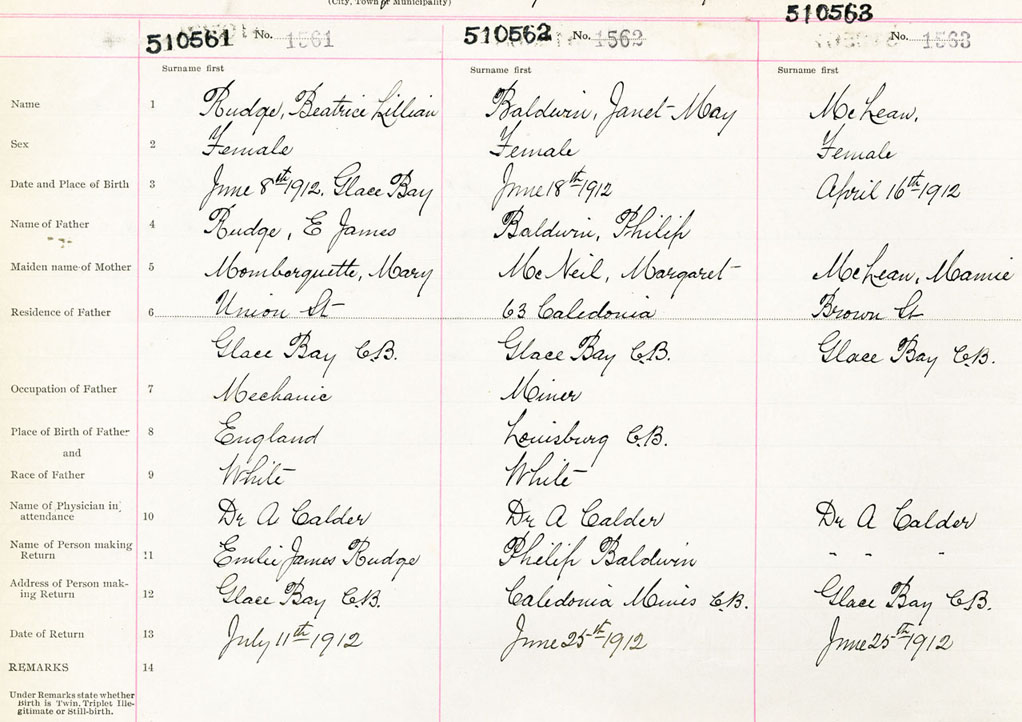 (City, Town or Municipality)
510561 No. 1561 510562 No. 1562 510563 No. 1563
Surname first Surname first Surname first
Name 1 Rudge, Beatrice Lillian Baldwin, Janet May McLean,
Sex 2 Female Female Female
Date and Place of Birth 3 June 8th 1912. Glace Bay June 18th 1912 April 16th 1912
Name of Father 4 Rudge, E James Baldwin, Philip
Maiden name of Mother 5 Momborquette, Mary McNeil, Margaret McLean, Mamie
Residence of Father 6 Union St 63 Caledonia Brown St
Glace Bay C.B. Glace Bay C.B. Glace Bay C.B.
Occupation of Father 7 Mechanic Miner
Place of Birth of Father 8 England Louisburg C.B.
and
Race of Father 9 White White
Name of Physician in attendance 10 Dr A Calder Dr A Calder Dr A Calder
Name of Person making Return 11 Emlie James Rudge Philip Baldwin " " "
Address of Person making Return 12 Glace Bay C.B. Caledonia Mines C.B. Glace Bay C.B.
Date of Return 13 July 11th 1912 June 25th 1912 June 25th 1912
REMARKS 14
Under Remarks state whether
Birth is Twin, Triplet Ille-
gitimate or Still-birth.